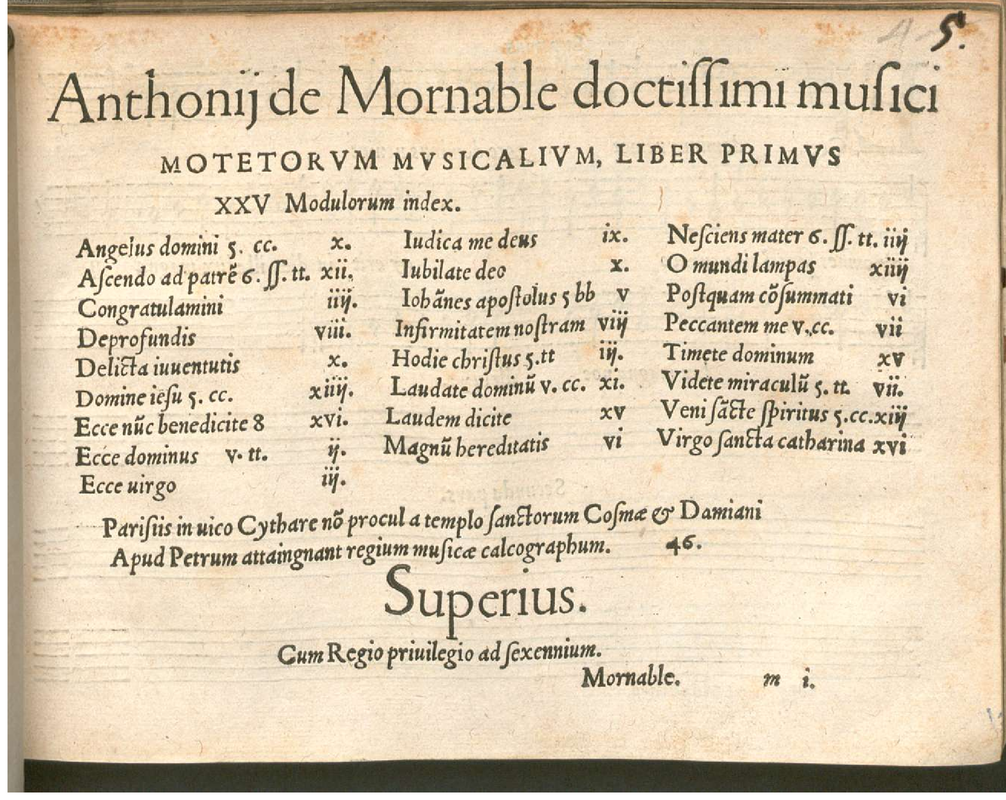 5.
Anthonij de Mornable doctiſſimi muſici
MOTETORVM MVSICALIVM, LIBER PRIMVS
XXV Modulorum index.
Angelus domini 5. cc. x.
Aſcendo ad patrẽ 6. ſſ. tt. xii.
Congratulamini iiij.
Deprofundis viii.
Delicta iuuentutis x.
Domine ieſu 5. cc. xiiij.
Ecce nũc benedicite 8 xvi.
Ecce dominus v. tt. ij.
Ecce uirgo iij.
Iudica me deus ix.
Iubilate deo x.
Iohãnes apoſtolus 5 bb v
Infirmitatem noſtram viij
Hodie chriſtus 5.tt iij.
Laudate dominũ v. cc. xi.
Laudem dicite xv
Magnũ hereditatis vi
Neſciens mater 6. ſſ. tt. iiij
O mundi lampas xiiij
Poſtquam cõſummati vi
Peccantem me v.cc. vii
Timete dominum xv
Videte miraculũ 5. tt. vii.
Veni ſãcte ſpiritus 5.cc.xiij
Virgo ſancta catharina xvi
Pariſiis in uico Cythare nõ procul a templo ſanctorum Coſmæ & Damiani
Apud Petrum attaingnant regium muſicæ calcographum. 46.
Superius.
Cum Regio priuilegio ad ſexennium.
Mornable. m i.